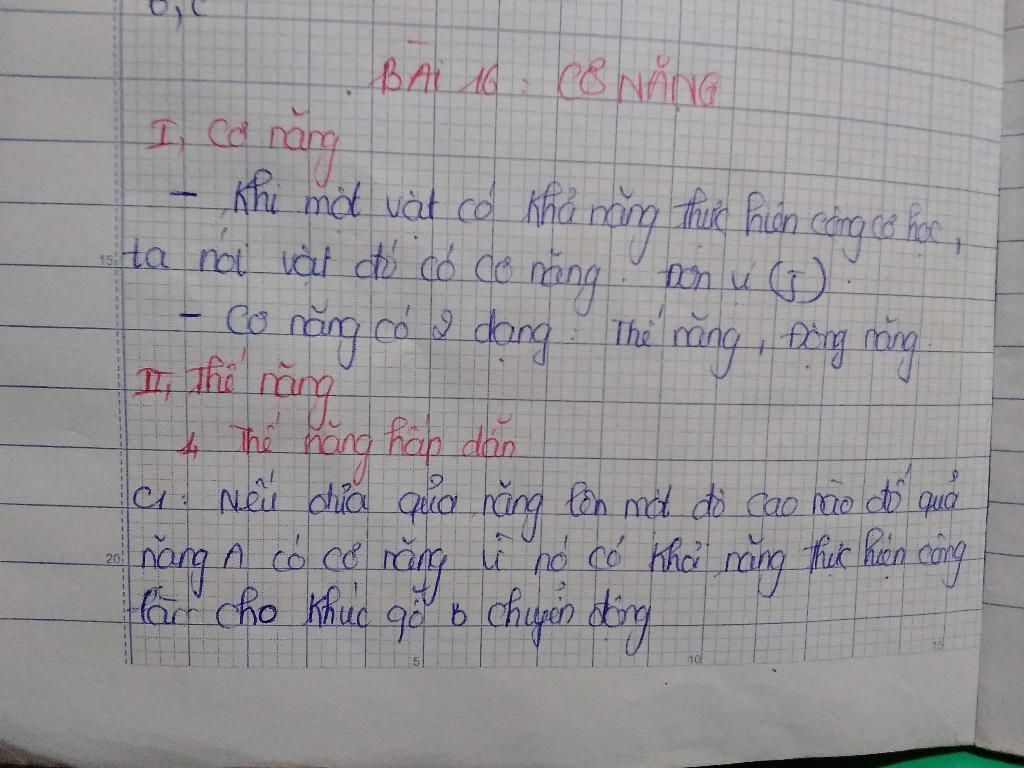 BÀI 16 : CƠ NĂNG
I, Cơ năng
- Khi một vật có khả năng thực hiện công cơ học,
15 ta nói vật đó có cơ năng. Đơn vị (J).
- Cơ năng có 2 dạng : Thế năng, Động năng.
II, Thế năng
1, Thế năng hấp dẫn
C1 : Nếu đưa quả nặng lên một độ cao nào đó quả
20 nặng A có cơ năng vì nó có khả năng thực hiện công
làm cho khúc gỗ b chuyển động
5 10 15